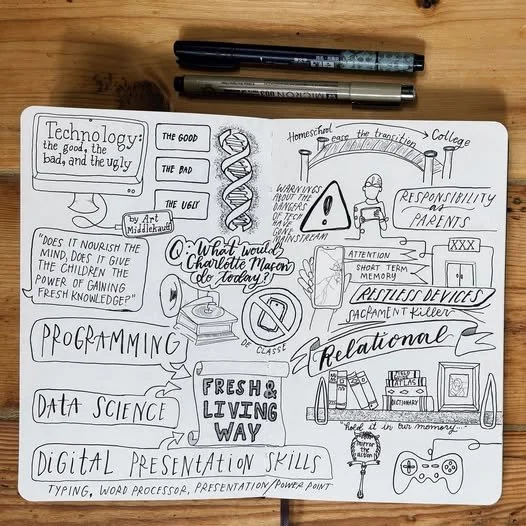 MICRON 005
Technology:
the good, the
bad, and the ugly
THE GOOD
THE BAD
THE UGLY
by Art
Middlekauff
"DOES IT NOURISH THE
MIND, DOES IT GIVE
THE CHILDREN THE
POWER OF GAINING
FRESH KNOWLEDGE?"
Q: What would
Charlotte Mason
do today?
DE CLASSÉ
PROGRAMMING
DATA SCIENCE
FRESH &
LIVING
WAY
DIGITAL PRESENTATION SKILLS
TYPING, WORD PROCESSOR, PRESENTATION/POWER POINT
Homeschool ease the transition College
WARNINGS
ABOUT THE
DANGERS
OF TECH
HAVE
GONE
MAINSTREAM
!
RESPONSIBILITY
of PARENTS
ATTENTION
SHORT TERM
MEMORY
XXX
RESTLESS DEVICES
SACRAMENT Killer
Relational
ATLAS
DICTIONARY
hold it in our memory...
mirror
the
action